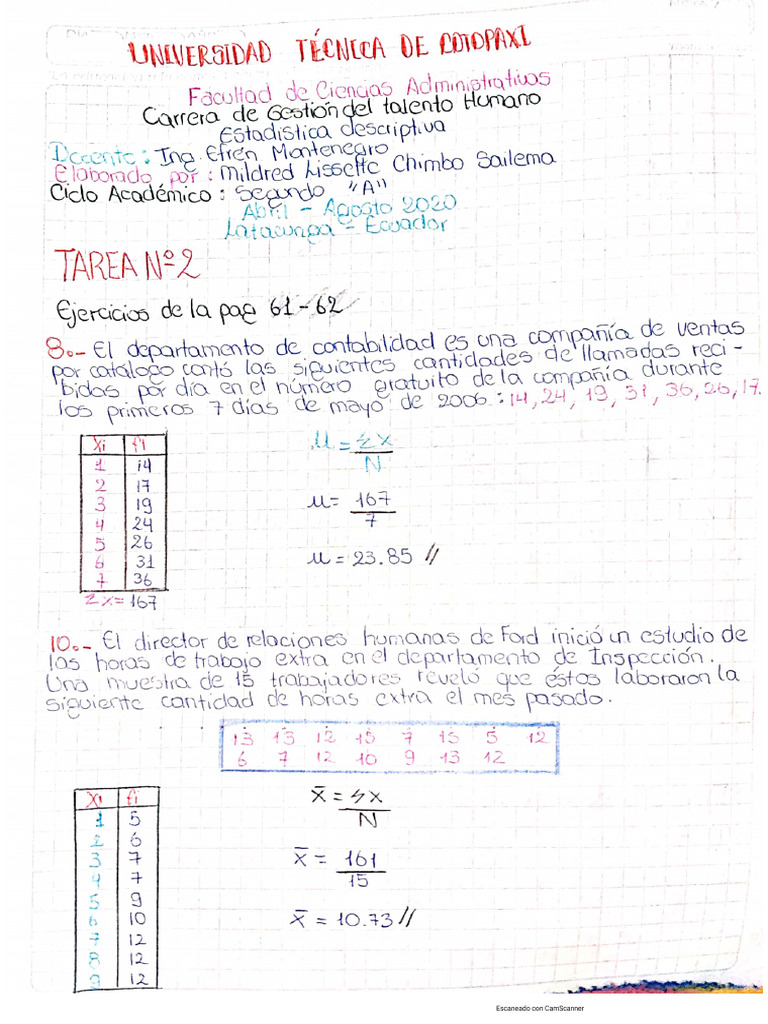 UNIVERSIDAD TÉCNICA DE COTOPAXI
Facultad de Ciencias Administrativas
Carrera de Gestión del talento Humano
Estadística descriptiva
Docente: Ing. Efrén Montenegro
Elaborado por: Mildred Lissette Chimbo Sailema
Ciclo Académico: Segundo "A"
Abril - Agosto 2020
Latacunga - Ecuador
TAREA Nº2
Ejercicios de la pag 61-62
8.- El departamento de contabilidad es una compañía de ventas
por catálogo contó las siguientes cantidades de llamadas reci-
bidas por día en el número gratuito de la compañía durante
los primeros 7 días de mayo de 2006: 14, 24, 19, 31, 36, 26, 17.
Xi fi
1 14
2 17
3 19
4 24
5 26
6 31
7 36
Σx= 167
μ = Σx
N
μ= 167
7
μ = 23.85 //
10.- El director de relaciones humanas de Ford inició un estudio de
las horas de trabajo extra en el departamento de Inspección.
Una muestra de 15 trabajadores reveló que éstos laboraron la
siguiente cantidad de horas extra el mes pasado.
13 13 12 15 7 15 5 12
6 7 12 10 9 13 12
Xi fi
1 5
2 6
3 7
4 7
5 9
6 10
7 12
8 12
9 12
x̄ = Σx
N
x̄ = 161
15
x̄ = 10.73 //
Escaneado con CamScanner